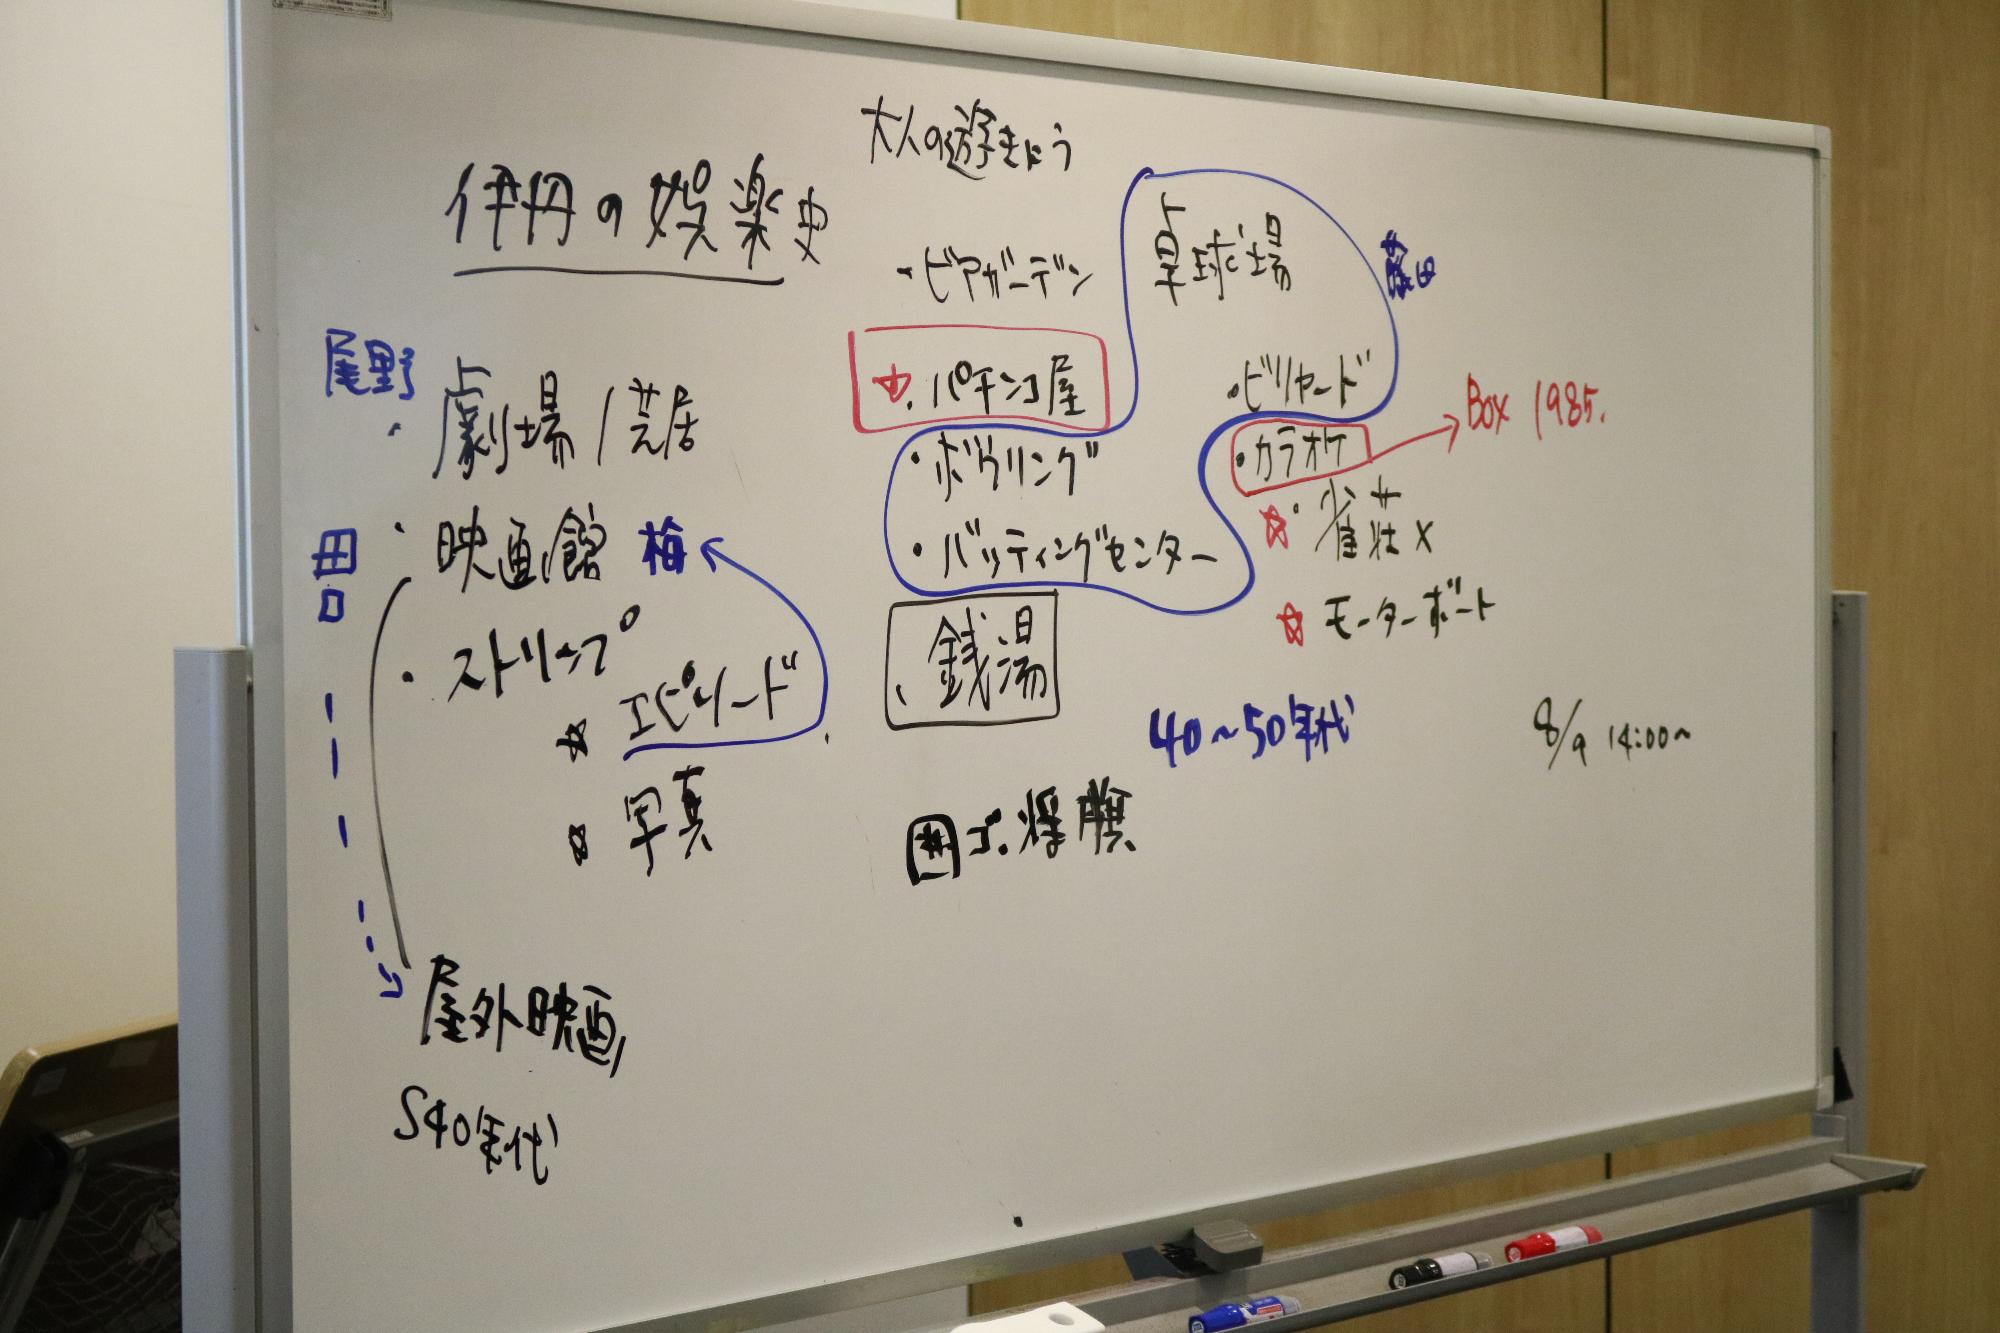 大人の遊きょう
伊丹の娯楽史
・ビアガーデン
卓球場
藤田
尾野
・劇場/芝居
☆・パチンコ屋
・ビリヤード
・カラオケ
Box 1985.
・ボウリング
・映画館 梅
田口
・バッティングセンター
☆・雀荘×
☆モーターボート
・ストリップ
☆エピソード
・銭湯
40~50年代
8/9 14:00~
☆写真
囲ゴ.将棋
屋外映画
S40年代